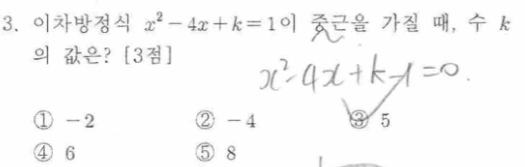 3. 이차방정식 x²-4x+k=1이 중근을 가질 때, 수 k
의 값은? [3점]
x²-4x+k-1=0.
① -2 ② -4 ③ 5
④ 6 ⑤ 8